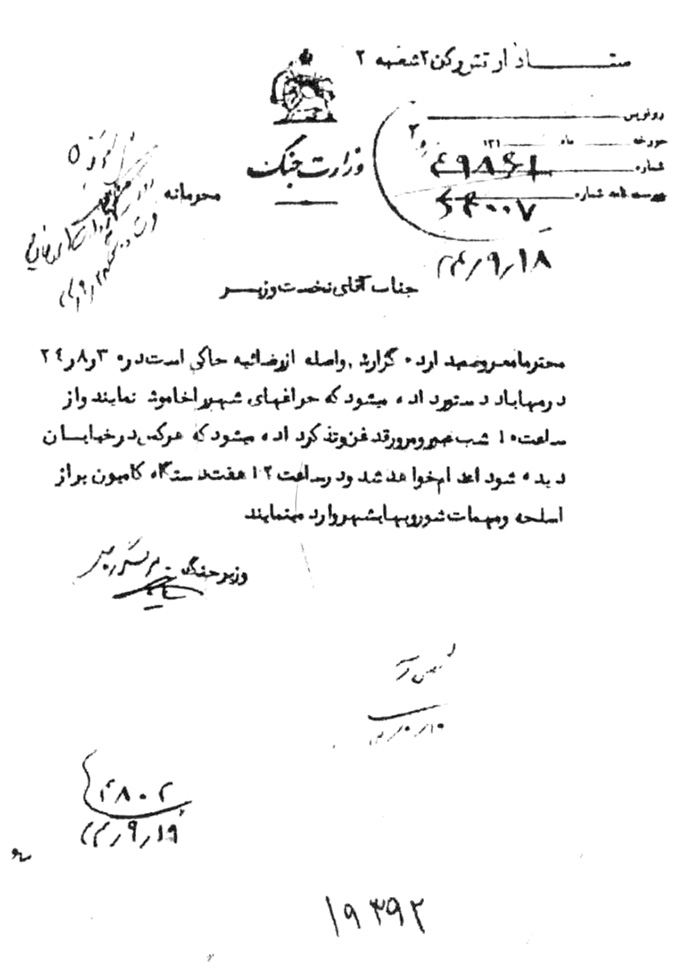 ستاد ارتش رکن ۲ شعبه ۲
وزارت جنگ
رونویس
مورخه ماه ۱۳۱
شماره
پیوست نامه شماره ۵۴۰۰۷
۲۴/۹/۱۸
محرمانه
جناب آقای نخست وزیر
محترما معروض میدارد گزارش واصله از رضائیه حاکی است در ۳۰ر۸ر۲۴
در مهاباد دستور داده میشود که چراغهای شهر را خاموش نمایند و از
ساعت ۱۰ شب عبور و مرور قدغن و تذکر داده میشود که هرکس در خیابان
دیده شود اعدام خواهد شد و در ساعت ۱۲ هفت دستگاه کامیون پر از
اسلحه و مهمات شوروی ها بشهر وارد مینمایند
وزیر جنگ
۴۸۰۲
۲۴/۹/۱۹
۱۹۳۹۲